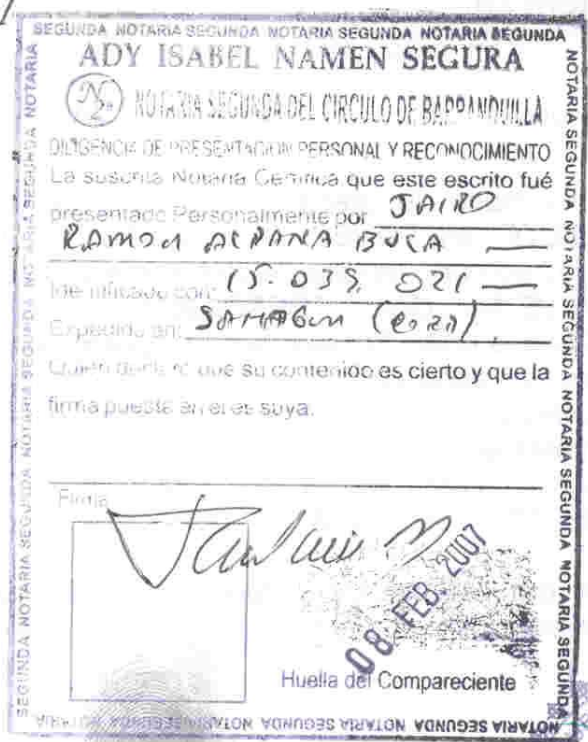 SEGUNDA NOTARIA SEGUNDA NOTARIA SEGUNDA NOTARIA SEGUNDA
ADY ISABEL NAMEN SEGURA
N 2a NOTARIA SEGUNDA DEL CIRCULO DE BARRANQUILLA
DILIGENCIA DE PRESENTACION PERSONAL Y RECONOCIMIENTO
La suscrita Notaria Certifica que este escrito fué
presentado Personalmente por JAIRO
RAMON
Identificado con: 15.039.021
Expedida en: SAHAGUN
Quien declaró que su contenido es cierto y que la
firma puesta en el es suya.
Firma
08 FEB. 2007
Huella del Compareciente
NOTARIA SEGUNDA NOTARIA SEGUNDA NOTARIA SEGUNDA NOTARIA SEGUNDA
SEGUNDA NOTARIA SEGUNDA NOTARIA SEGUNDA NOTARIA SEGUNDA NOTARIA
NOTARIA SEGUNDA NOTARIA SEGUNDA NOTARIA